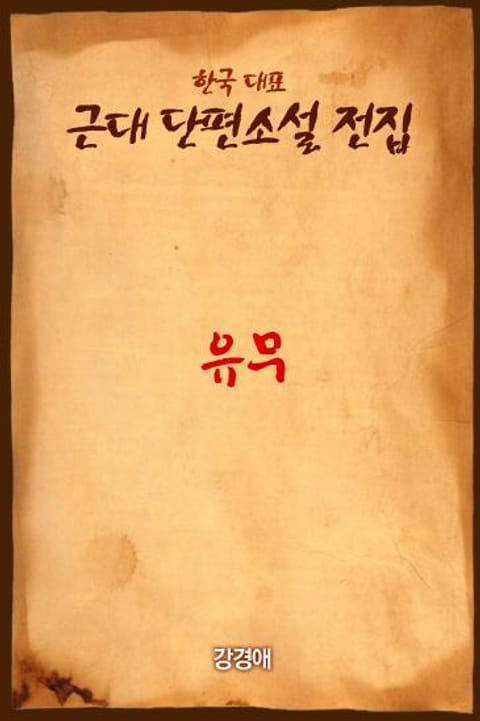 한국 대표
근대 단편소설 전집
유무
강경애